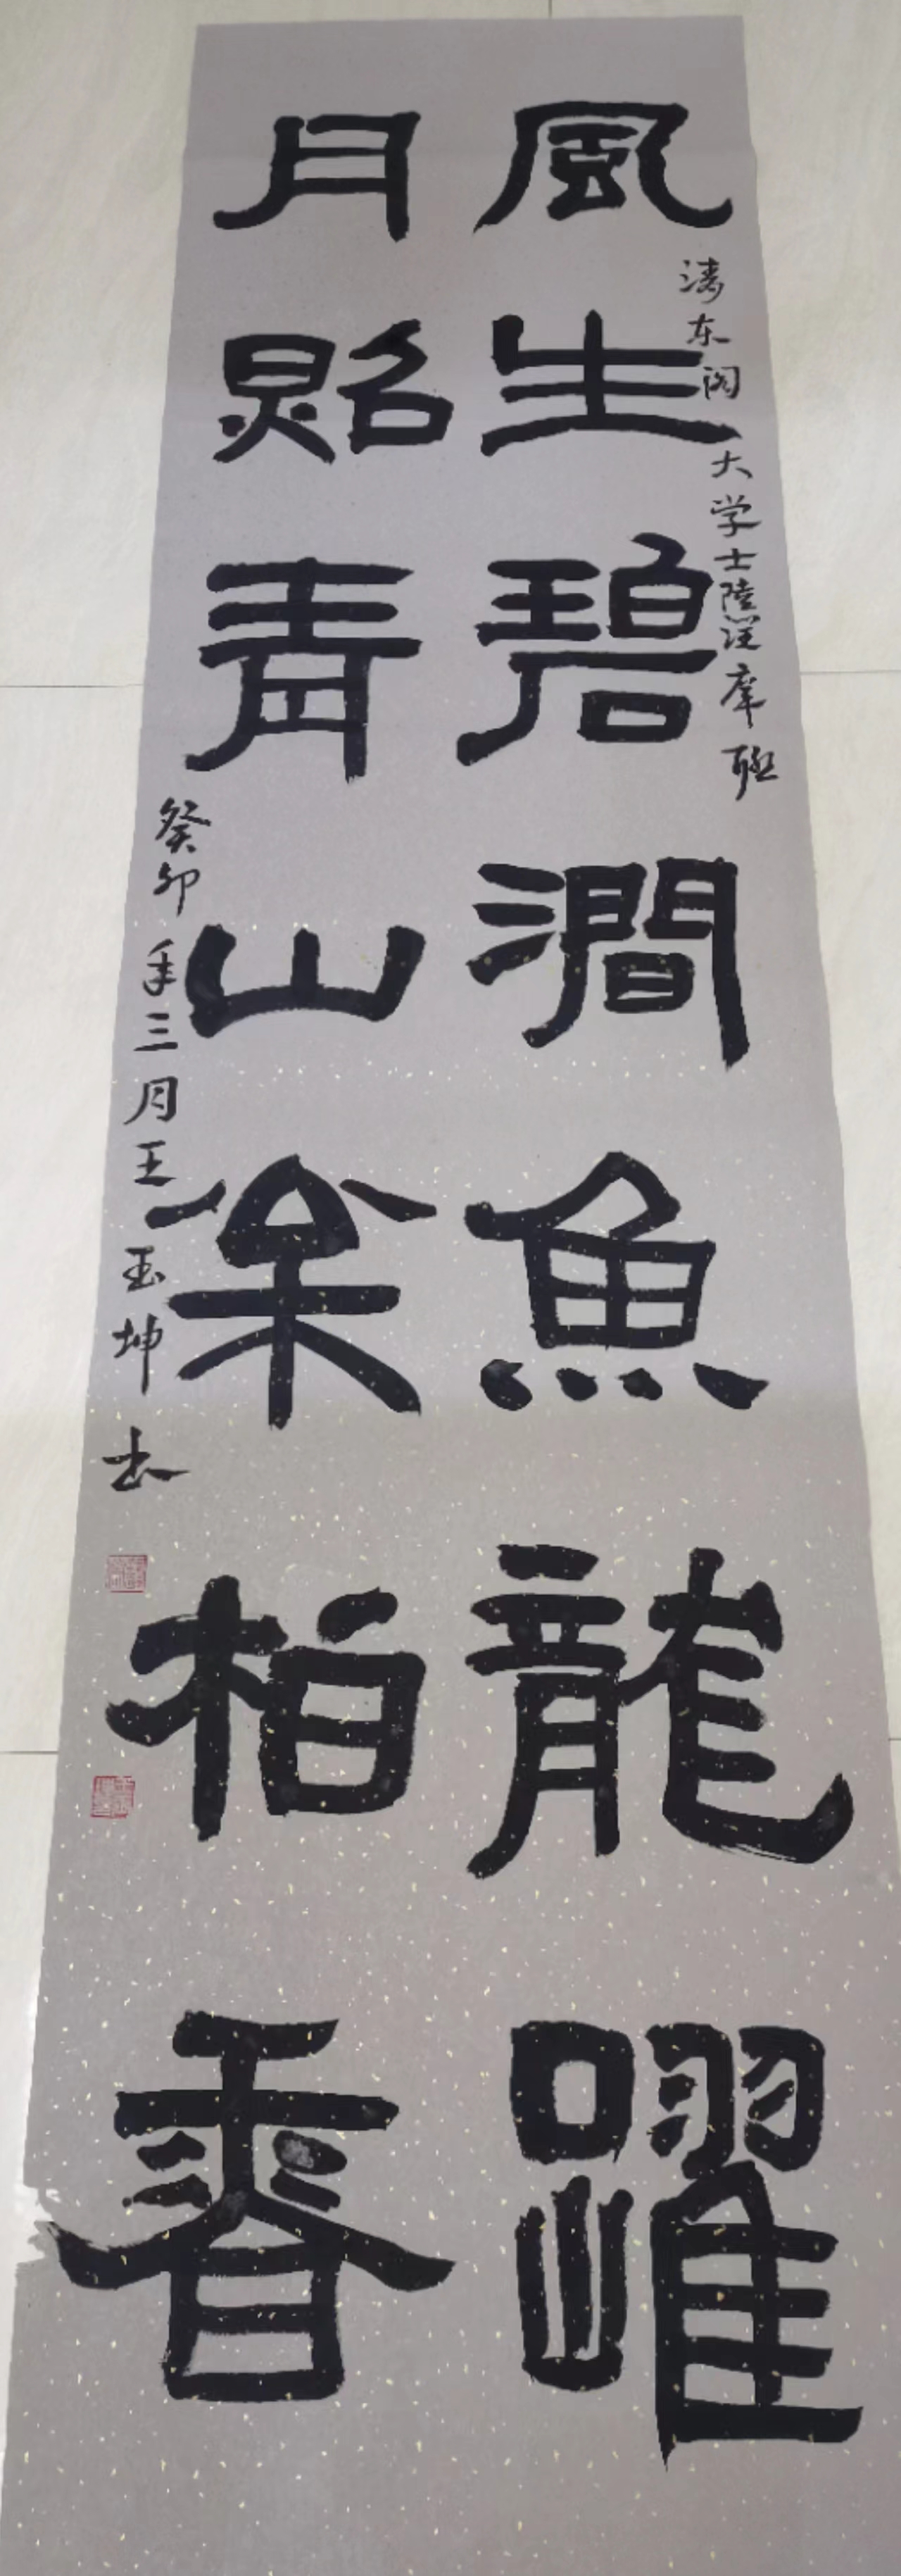 風生碧澗魚龍躍
清东阁大学士陸润庠联
月照青山松柏香
癸卯年三月王玉坤书